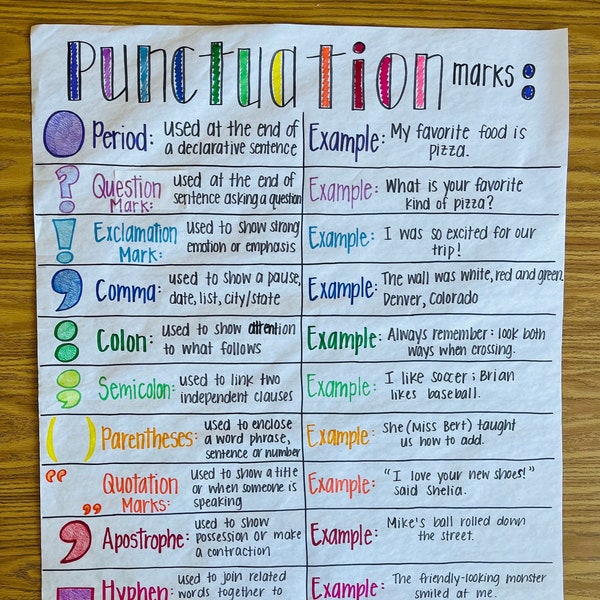 Punctuation marks:
Period: used at the end of
a declarative sentence
Example: My favorite food is
pizza.
? Question
Mark: used at the end of
sentence asking a question
Example: What is your favorite
kind of pizza?
! Exclamation
Mark: used to show strong
emotion or emphasis
Example: I was so excited for our
trip!
, Comma: used to show a pause,
date, list, city/state
Example: The wall was white, red and green.
Denver, Colorado
: Colon: used to show attention
to what follows
Example: Always remember: look both
ways when crossing.
; Semicolon: used to link two
independent clauses
Example: I like soccer; Brian
likes baseball.
( ) Parentheses: used to enclose
a word phrase,
sentence or number
Example: She (Miss Bert) taught
us how to add.
“ ” Quotation
Marks: used to show a title
or when someone is
speaking
Example: "I love your new shoes!"
said Shelia.
’ Apostrophe: used to show
possession or make
a contraction
Example: Mike's ball rolled down
the street.
- Hyphen: used to join related
words together to
Example: The friendly-looking monster
smiled at me.